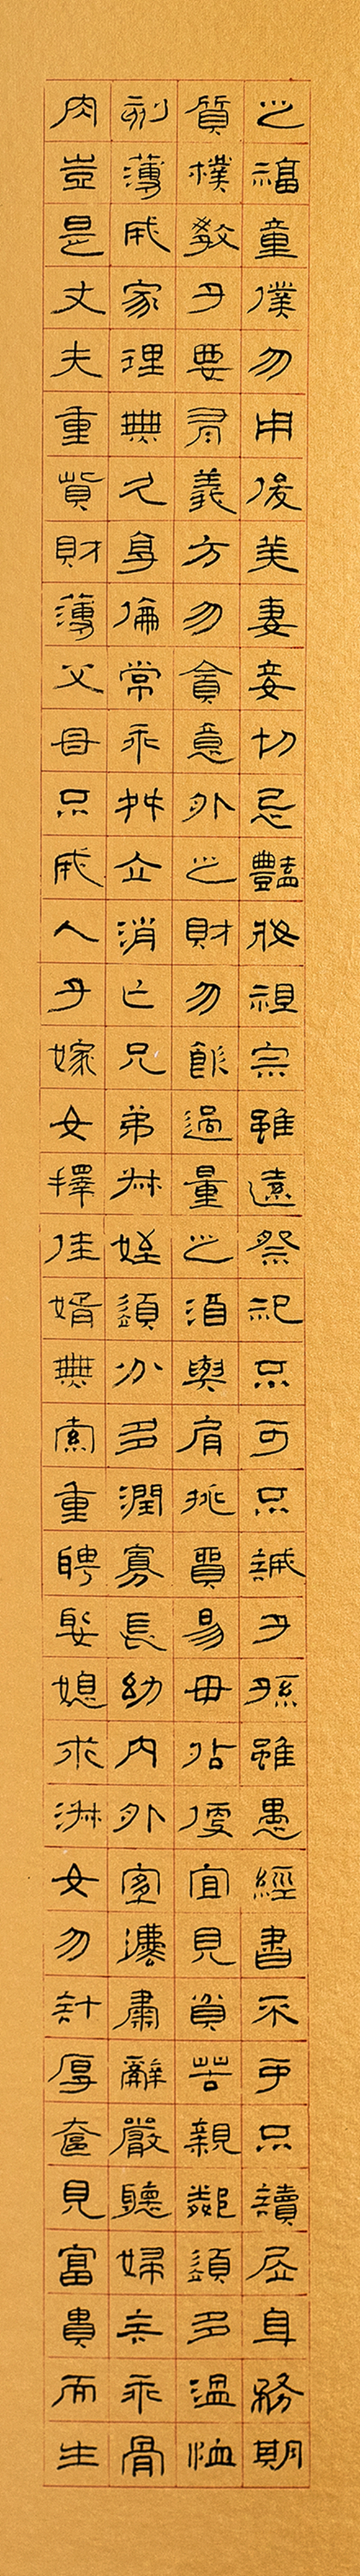 之福童僕勿用俊美妻妾切忌豔妝祖宗雖遠祭祀不可不誠子孫雖愚經書不可不讀居身務期
質樸教子要有義方勿貪意外之財勿飲過量之酒與肩挑貿易毋佔便宜見貧苦親鄰須多溫恤
刻薄成家理無久享倫常乖舛立消亡兄弟叔姪須分多潤寡長幼內外宜法肅辭嚴聽婦言乖骨
肉豈是丈夫重貲財薄父母不成人子嫁女擇佳婿無索重聘娶媳求淑女勿計厚奩見富貴而生